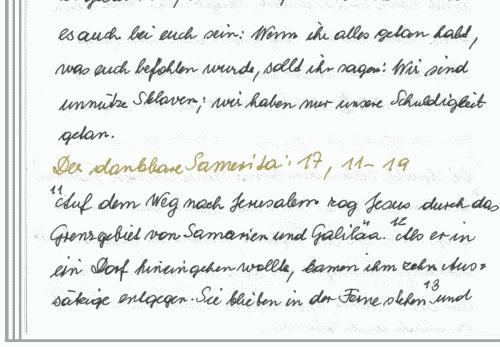 es auch bei euch sein: Wenn ihr alles getan habt,
was euch befohlen wurde, sollt ihr sagen: Wir sind
unnütze Sklaven; wir haben nur unsere Schuldigkeit
getan.
Der dankbare Samarita: 17, 11-19
11 Auf dem Weg nach Jerusalem zog Jesus durch das
Grenzgebiet von Samarien und Galiläa. 12 Als er in
ein Dorf hineingehen wollte, kamen ihm zehn Aus=
sätzige entgegen. Sie blieben in der Ferne stehen 13 und